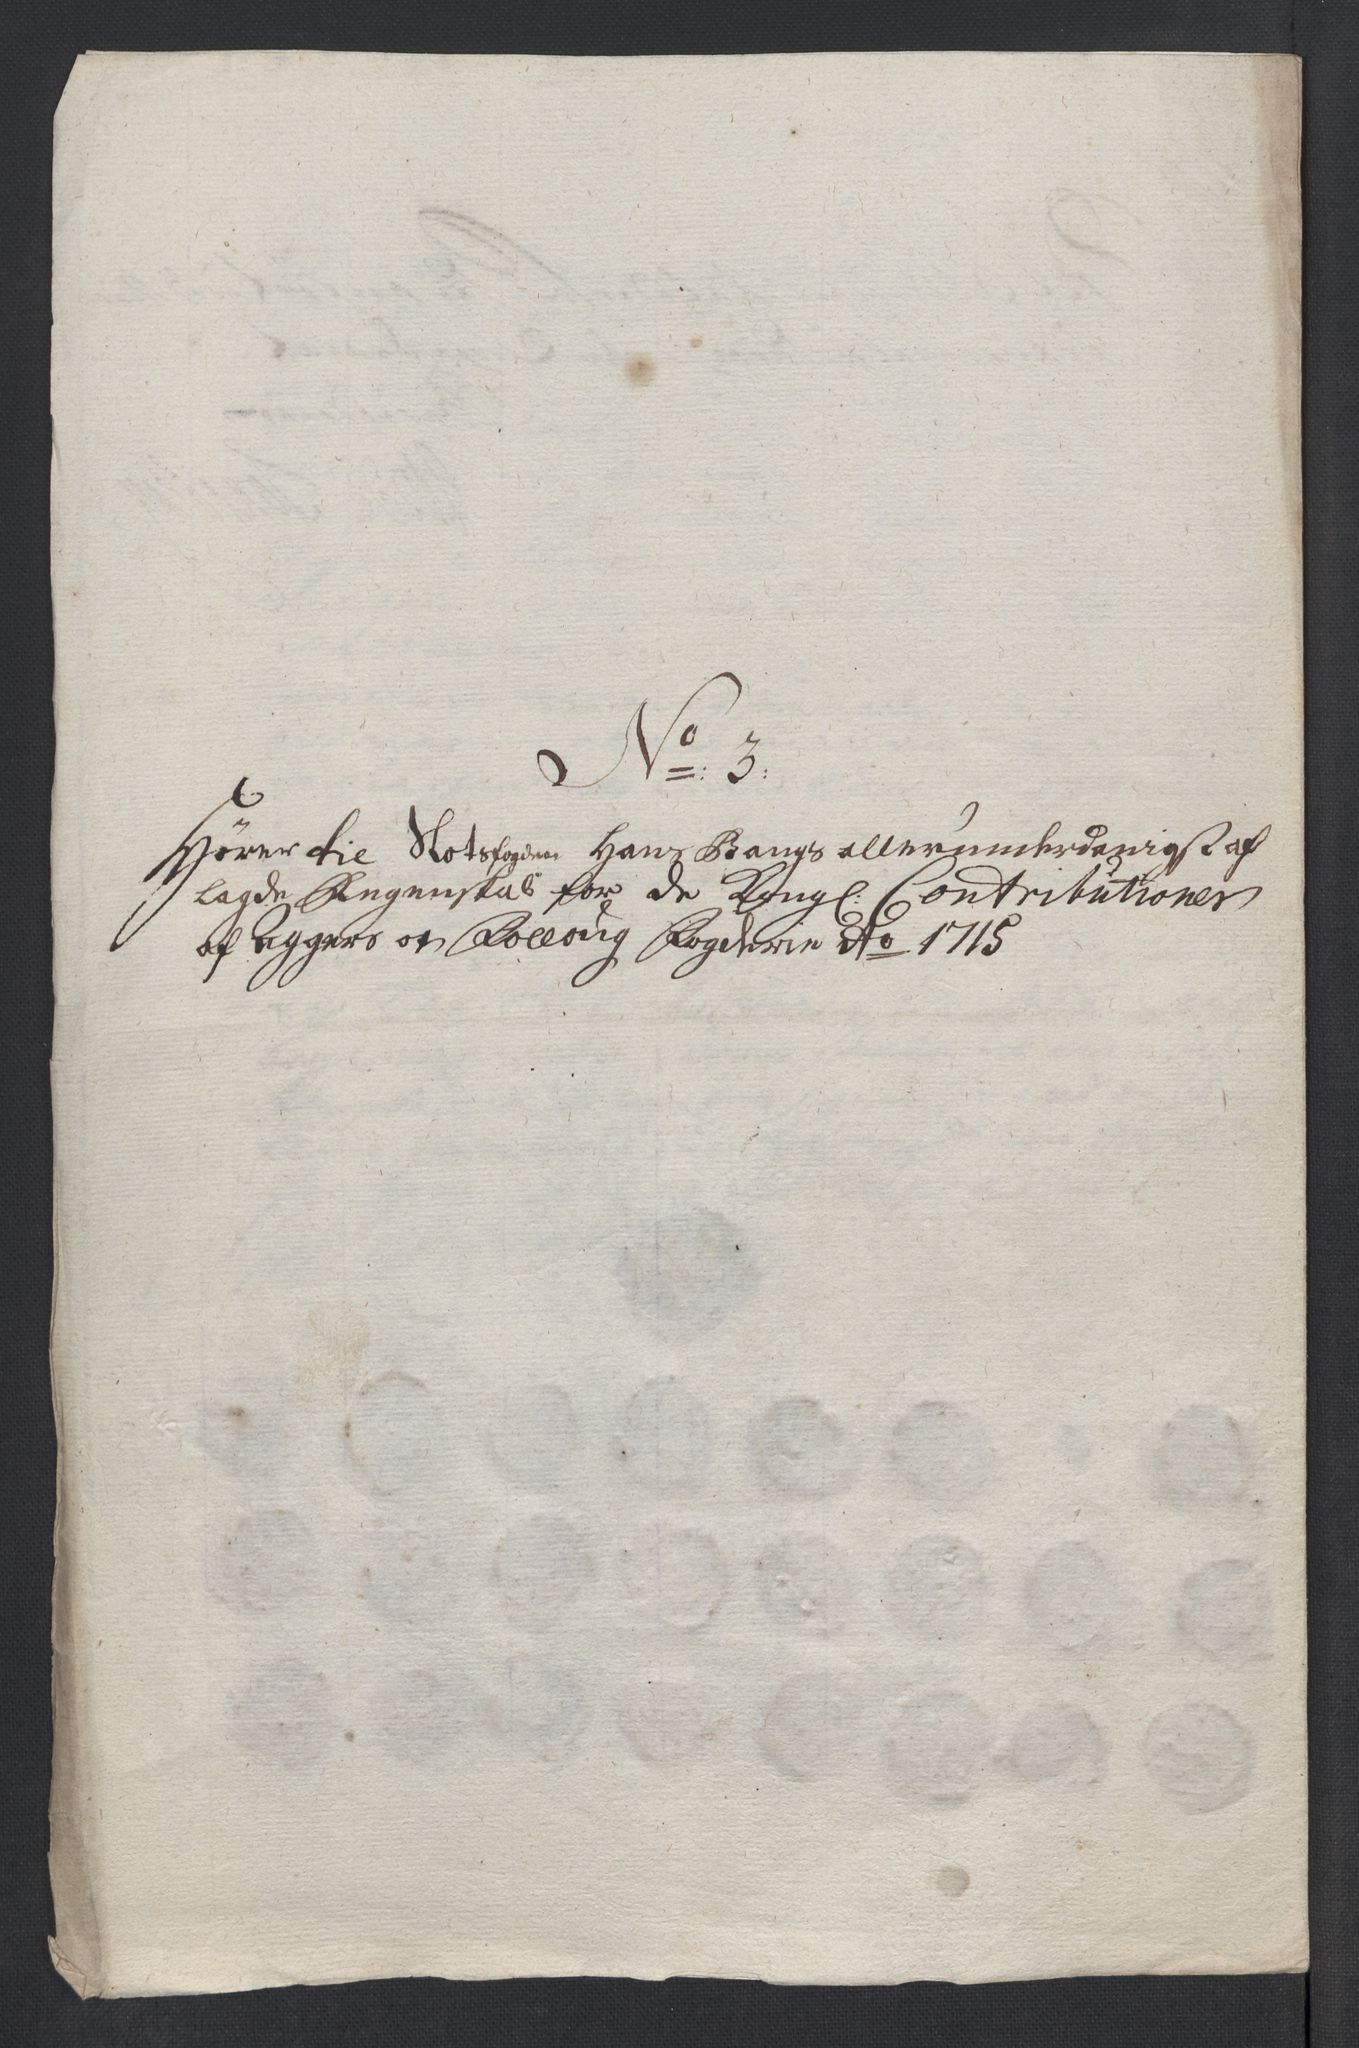 No: 3:
Hører til Slotsfogden Hans Bangs allerunderdanigst af
lagde Regenskab for de Kongl: Contributioner
af Aggers og Folloug Fogderie Ao 1715